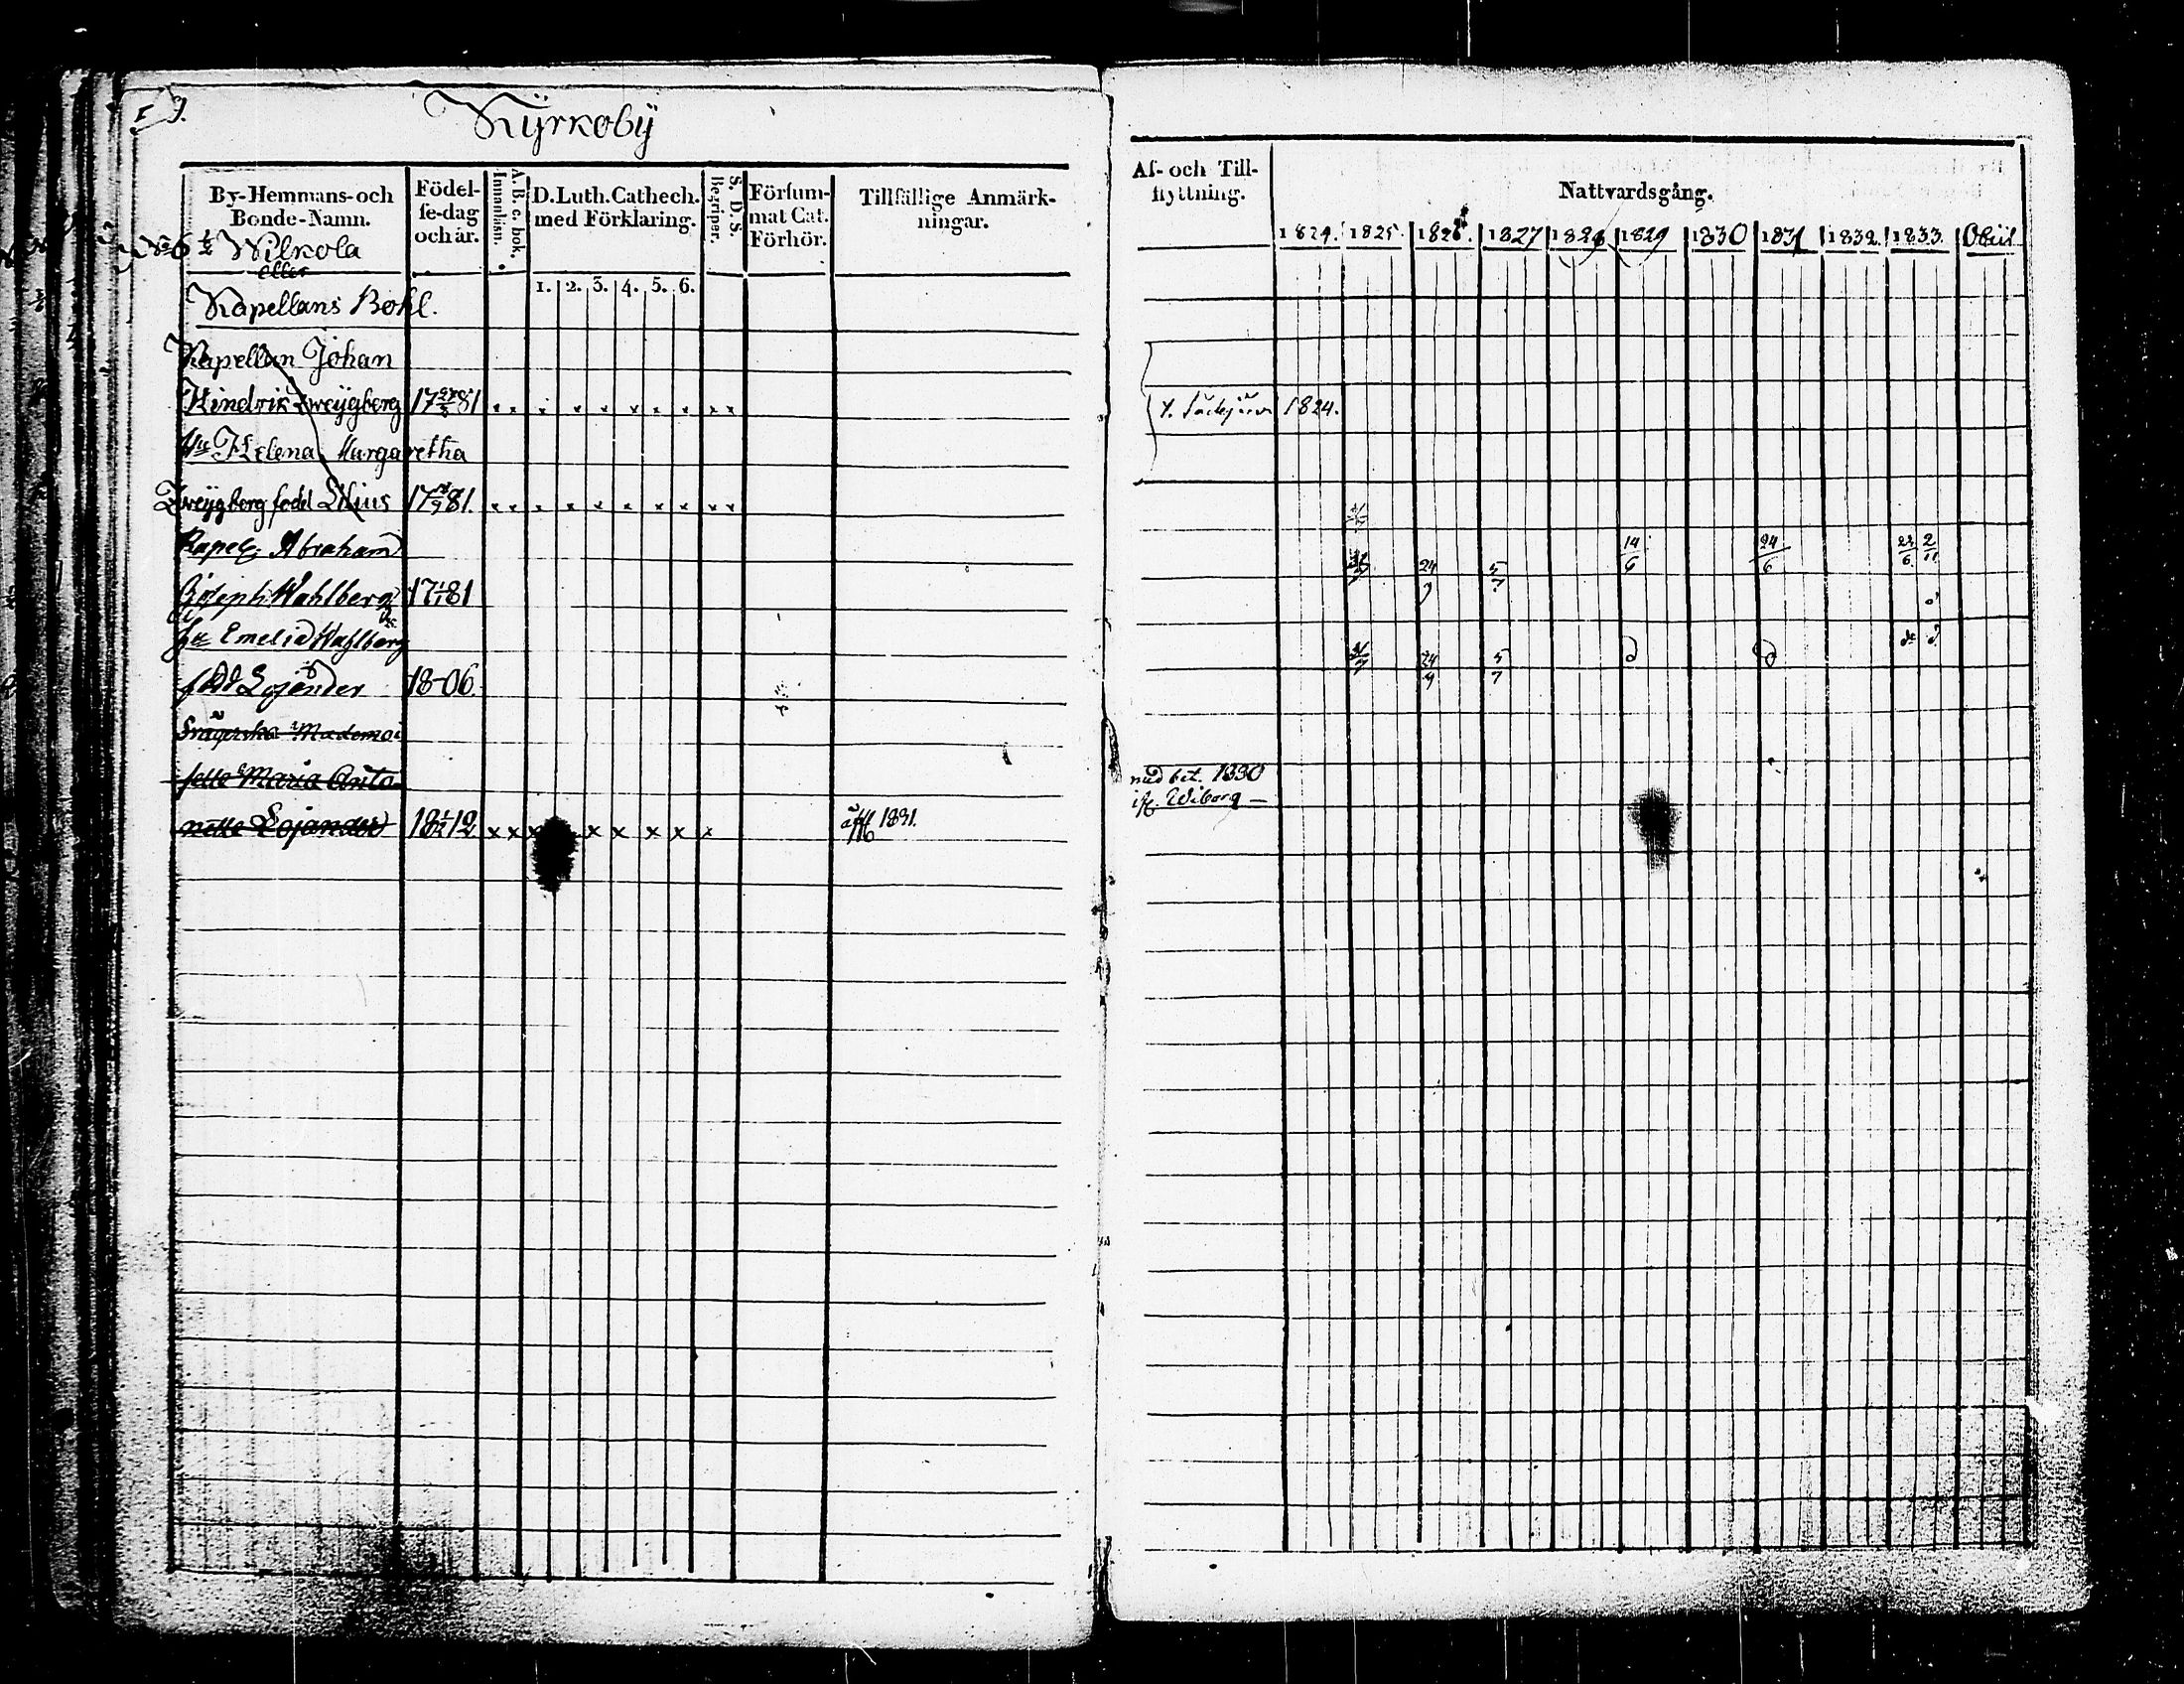 Kÿrkobÿ
By-Hemmans-och
Bonde-Namn.
Födel-
se-dag
och år.
A. B. c. bok.
Innanläsn.
D. Luth. Cathech.
med Förklaring.
S. D. S.
Begriper.
Försum-
mat Cat.
Förhör.
Tillfällige Anmärk-
ningar.
No 6 1/2 Wilkola
eller
Kapellans Bohl.
1. 2. 3. 4. 5. 6.
Kapellan Johan
Hindrik Zweÿgberg 17 81 x x x x x x x x x x
Hu Helena Margaretha
Zweÿgberg född 17 81. x x x x x x x x x x
Kapel. Abraham
Joseph Wahlberg 17 1/1 81
Hu Emelia Wahlberg
född Lojander 18 06.
Svägerska Mademoi
selle Maria Anto
nette Lojander 18 12 x x x x x x x x x 1831.
Af- och Till-
flyttning.
Nattvardsgång.
1824. 1825. 1826. 1827 1828 1829 1830 1831 1832. 1833. Obiit
1824.
14/6 24/6 2/11
24/9 5/7
24/9 5/7
med bet. 1830
Wiborg –